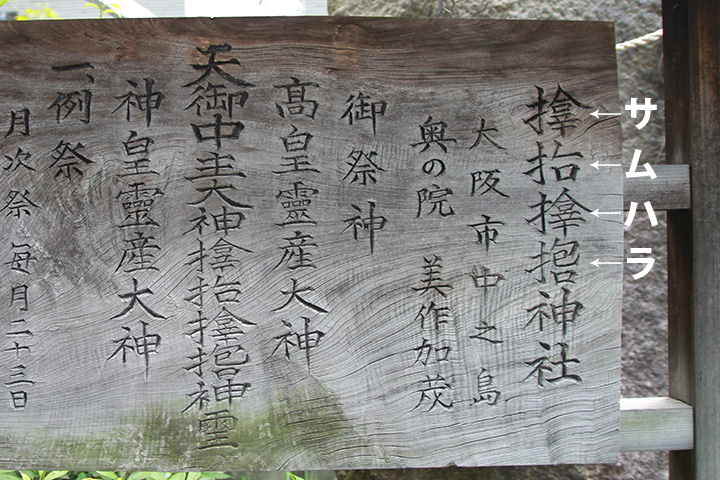 サムハラ
𪮷抬𪮇𫝼神社
大阪市中之島
奥の院 美作加茂
御祭神
髙皇靈産大神
天御中主大神𪮷抬𪮇𫝼神霊
神皇靈産大神
一、例祭
月次祭 毎月二十三日